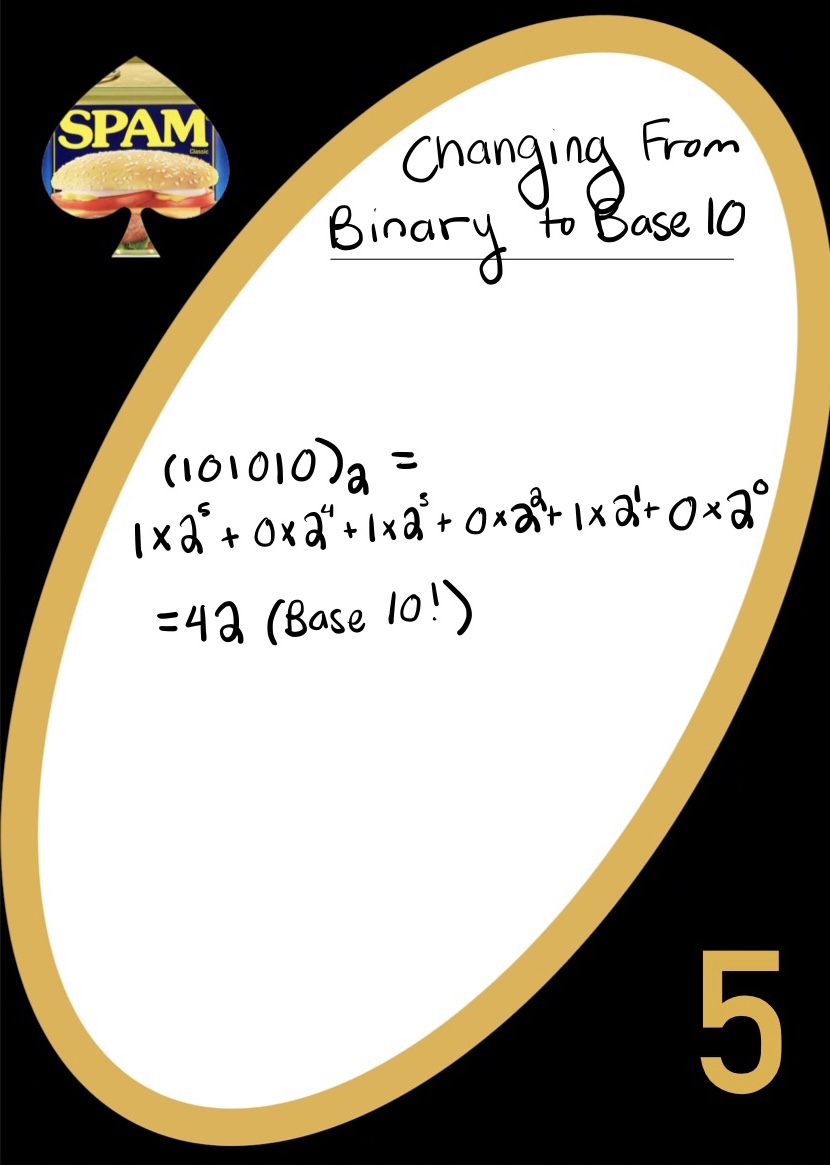 SPAM
Classic
Changing From
Binary to Base 10
(101010)₂ =
1×2⁵ + 0×2⁴ + 1×2³ + 0×2² + 1×2¹ + 0×2⁰
=42 (Base 10!)
5